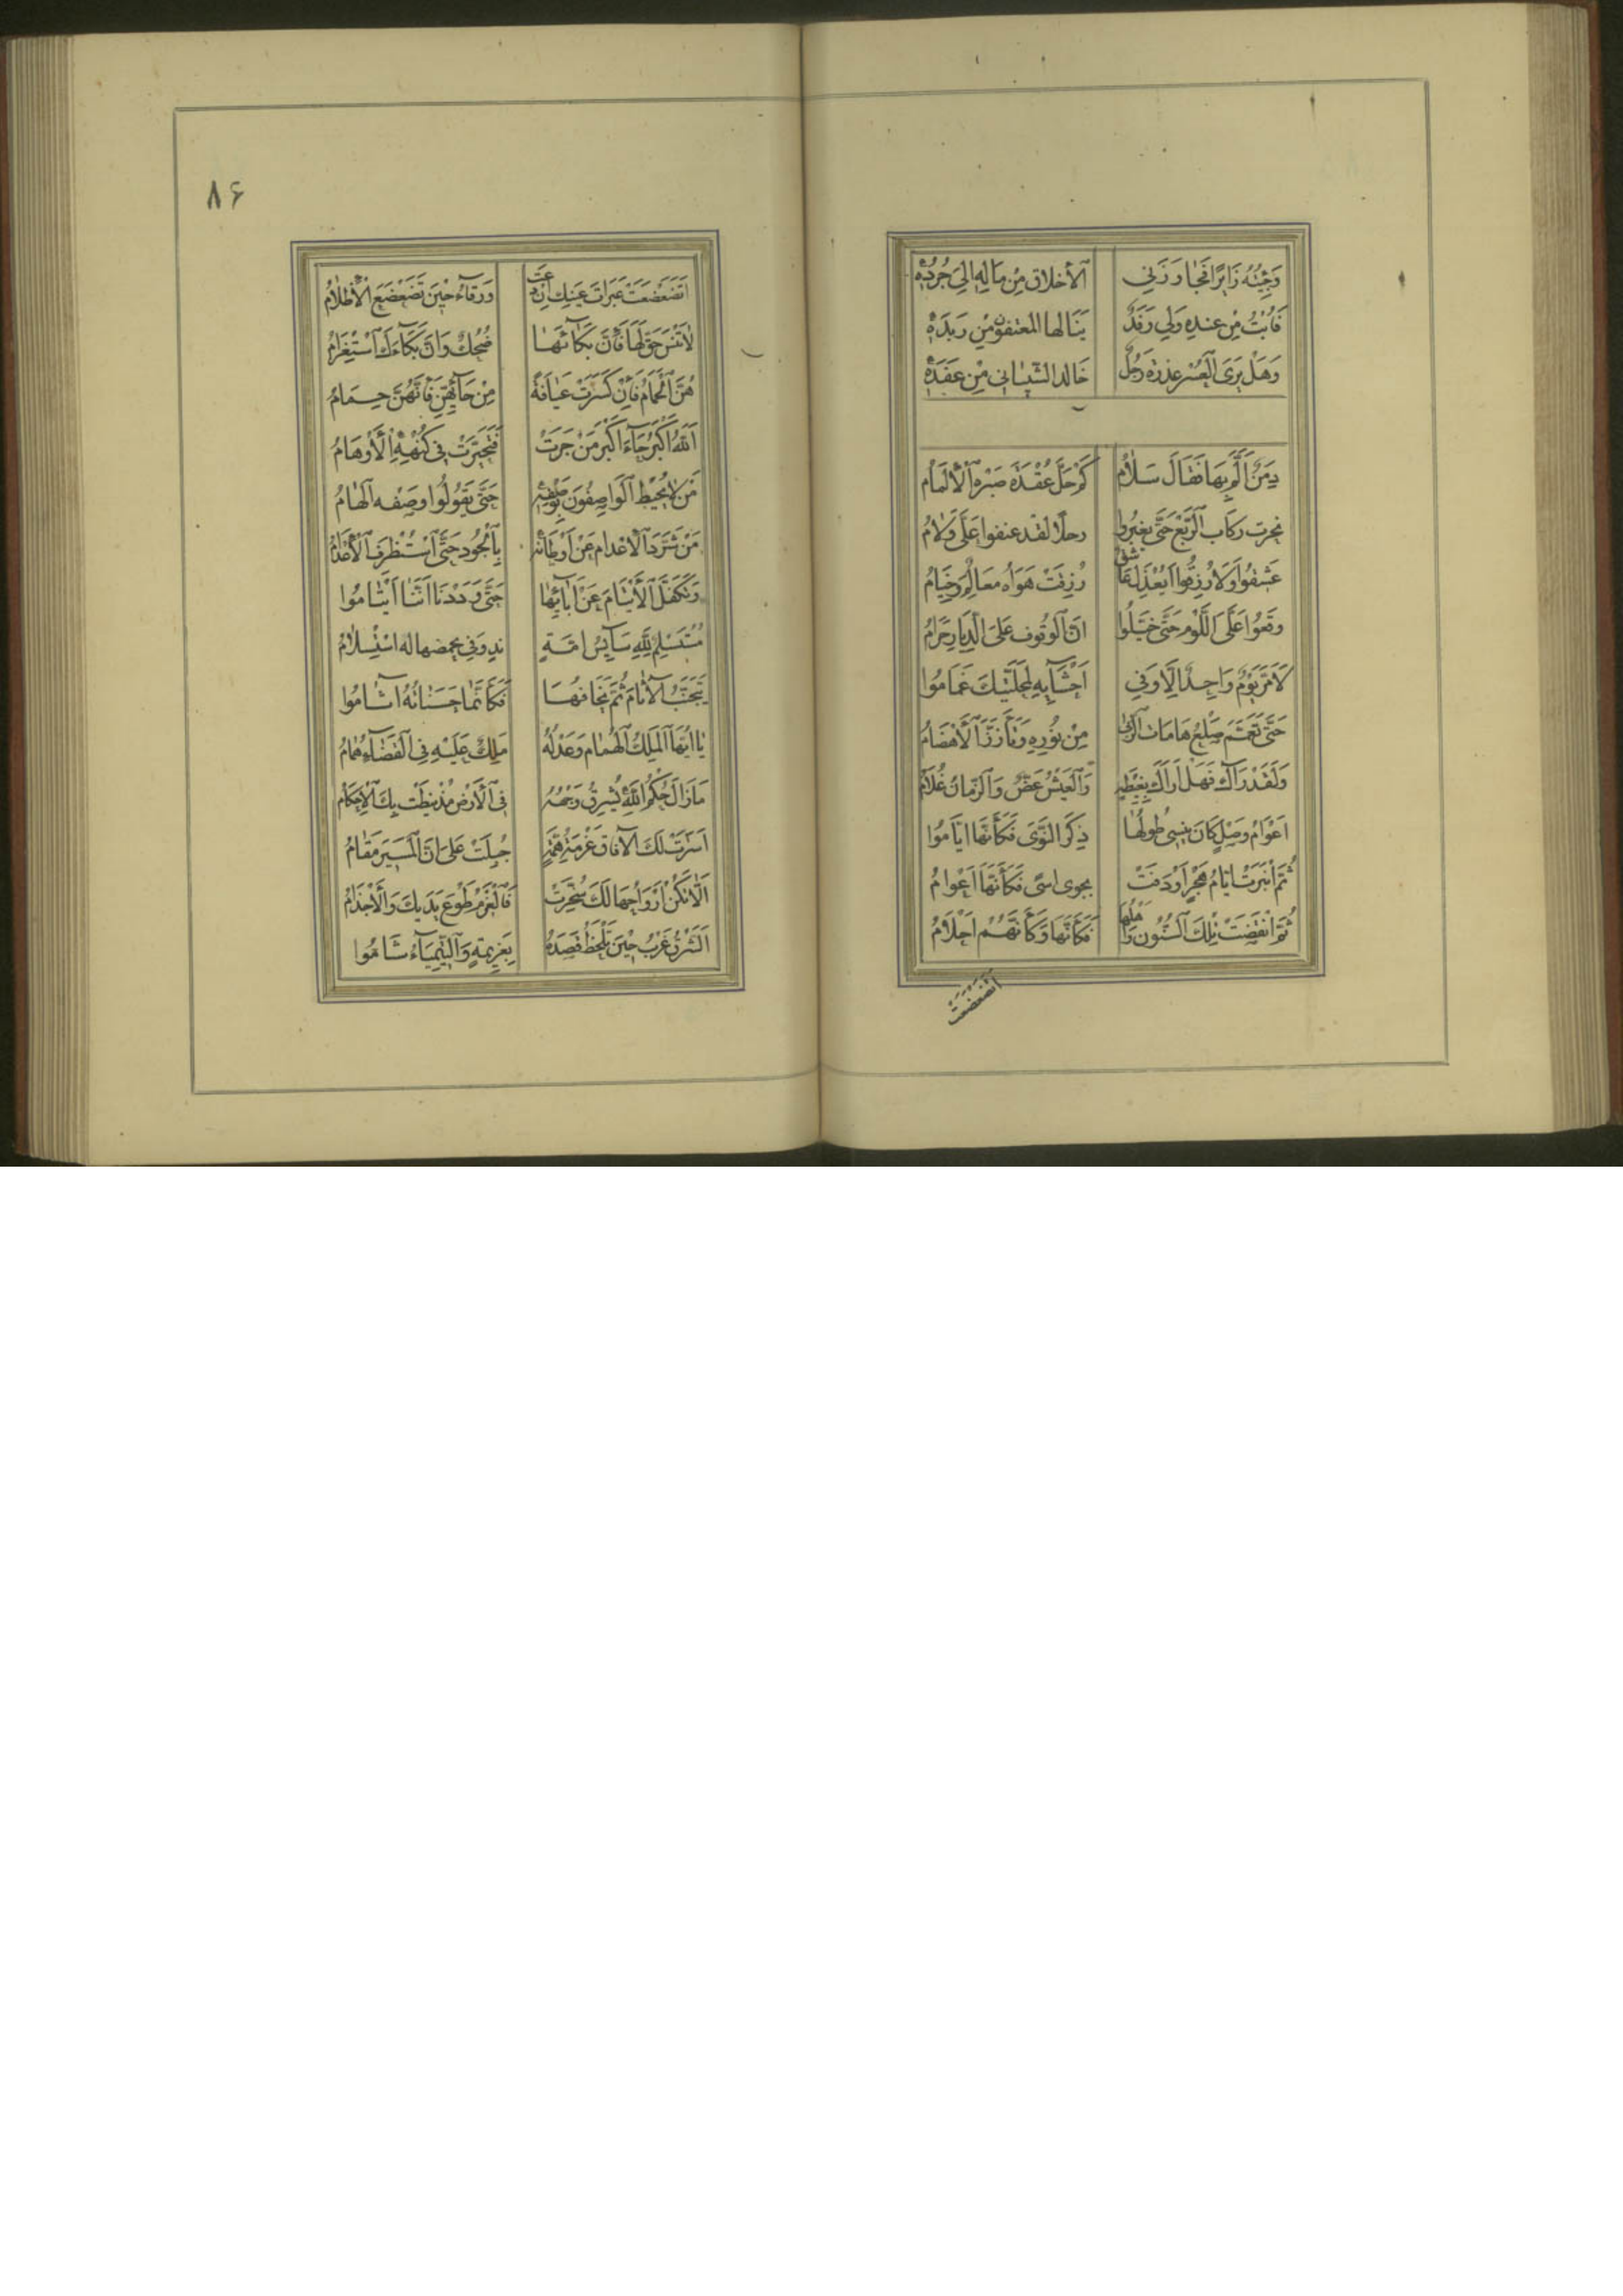 وَجِئْتُهُ زَائِرًا فَجَاوَزَنِي الْأَخْلَاقَ مِنْ مَالِهِ اِلَى جُرَدِهْ
فَأُبْتُ مِنْ عِنْدِهِ وَلِي رَفَدٌ يَنَالُهَا الْمُعْتَفُونَ مِنْ رَبَدِهْ
وَهَلْ يَرَى الْعُسْرَ عذرة رَجُلٌ خَالد الشيبانى مِنْ عُقَدِهْ
دِمَنٌ اَلَمَّ بِهَا فَقَالَ سَلَامُ كَمْ حَلَّ عُقْدَةَ صَبْرِهِ الْاِلْمَامُ
نحرت ركاب الرَّبْع حَتَّى يعبروا رجلًا لقد عنفوا عَلَيَّ وَلَامُ
عَشِقُوا وَلَا رُزِقُوا اَيُعْذَلُ عَاشِقٌ رُزِقَتْ هَوَاهُ مَعَالِمٌ وَخِيَامُ
وقفوا عَلَى اللَّوْم حَتَّى خَيَّلُوا اَنَّ الْوُقُوفَ عَلَى الدِّيَارِ حَرَامُ
لَا مَرَّ يَوْمٌ وَاحِدٌ اِلَّا وَفِي اَحْشَائِهِ لِمَحَلَّتَيْكَ غَمَامُوا
حَتَّى تَعَمَّمَ صُلْعُ هَامَاتِ الرُّبَى مِنْ نُورِهِ وَتَأَزَّرَ الْأَهْضَامُ
وَلَقَدْ رَاكِ فَهَلْ اَرَاكِ بِغِبْطَةٍ وَالْعَيْشُ غَضٌّ وَالزَّمَانُ غُلَامُ
اَعْوَامُ وَصْلٍ كَانَ يُنْسِى طُولَهَا ذِكْرُ النَّوَى فَكَأَنَّهَا اَيَّامُوا
ثُمَّ انْبَرَتْ اَيَّامُ هَجْرٍ اَرْدَفَتْ بجوى اسًى فَكَأَنَّهَا اَعْوَامُ
ثُمَّ انْقَضَتْ تِلْكَ السُّنُونُ وَاَهْلُهَا فَكَأَنَّهَا وَكَأَنَّهُمْ اَحْلَامُ
اَتَضَعْضَعَتْ
٨۶
اَتَضَعْضَعَتْ عَبَرَاتُ عَيْنِكَ اِنْ دَعَتْ وَرْقَاءُ حِينَ تَضَعْضَعَ الْاَظْلَامُ
لَا تَنْسَ حَقَّ لَهَا فَاِنَّ بُكَائَهَا ضَحِكٌ وَاِنَّ بُكَاءَكَ اسْتِغْرَامُ
هُنَّ الْحَمَامُ فَاِنْ كَسَرْتَ عِيَافَةً مِنْ حَائِهِنَّ فَاِنَّهُنَّ حِمَامُ
اَللهُ اَكْبَرُ جَاءَ اَكْبَرُ مَنْ جَرَتْ فَتَحَيَّرَتْ فِى كُنْهِهِ الْأَوْهَامُ
مَنْ لَا يُحِيطُ الْوَاصِفُونَ بِوَصْفِهِ حَتَّى يَقُولُوا وَصْفه اِلْهَامُ
مَنْ شَرَّدَ الْاعْدَام عَنْ اَوْطَانِهِ بِالْجُودِ حَتَّى اسْتُظْرِفَ الْاَعْدَامُ
وَتَكَفَّلَ الْأَيْتَامَ عَنْ اٰبَائِهَا حَتَّى وَدَدْنَا اَنَّنَا اَيْتَامُوا
مُسْتَسْلِمٌ لِلّٰهِ سَايِسُ امَّةٍ اسْتِسْلَامُ
يَتَجَنَّبُ الْاٰثَامَ ثُمَّ يَخَافُهَا فَكَأَنَّمَا حَسَنَاتُهُ اٰثَامُوا
يَا اَيُّهَا الْمَلِكُ الْهُمَامُ وَعَدْلُهُ مَلِكٌ عَلَيْهِ فِى الْقَضَاءِ هُمَامُ
مَا زَالَ حُكْمُ اللهِ يُشْرِقُ وَجْهُهُ فِى الْأَرْضِ مُذْ نِيطَتْ بِكَ الْاَحْكَامُ
اَسْرَتْ لَكَ الْاٰفَاقَ عَزْمَةُ هِمَّةٍ جُبِلَتْ عَلَى اَنَّ الْمَسِيرَ مَقَامُ
اِلَّا تَكُنْ اَرْوَاحُهَا لَكَ سُخِّرَتْ فَالْعَزْمُ طَوْعَ يَدَيْكَ وَالْأَجْذَامُ
اَلشَّرْقُ غَرْبٌ حِينَ تَلْحَظُ قَصْدَهُ